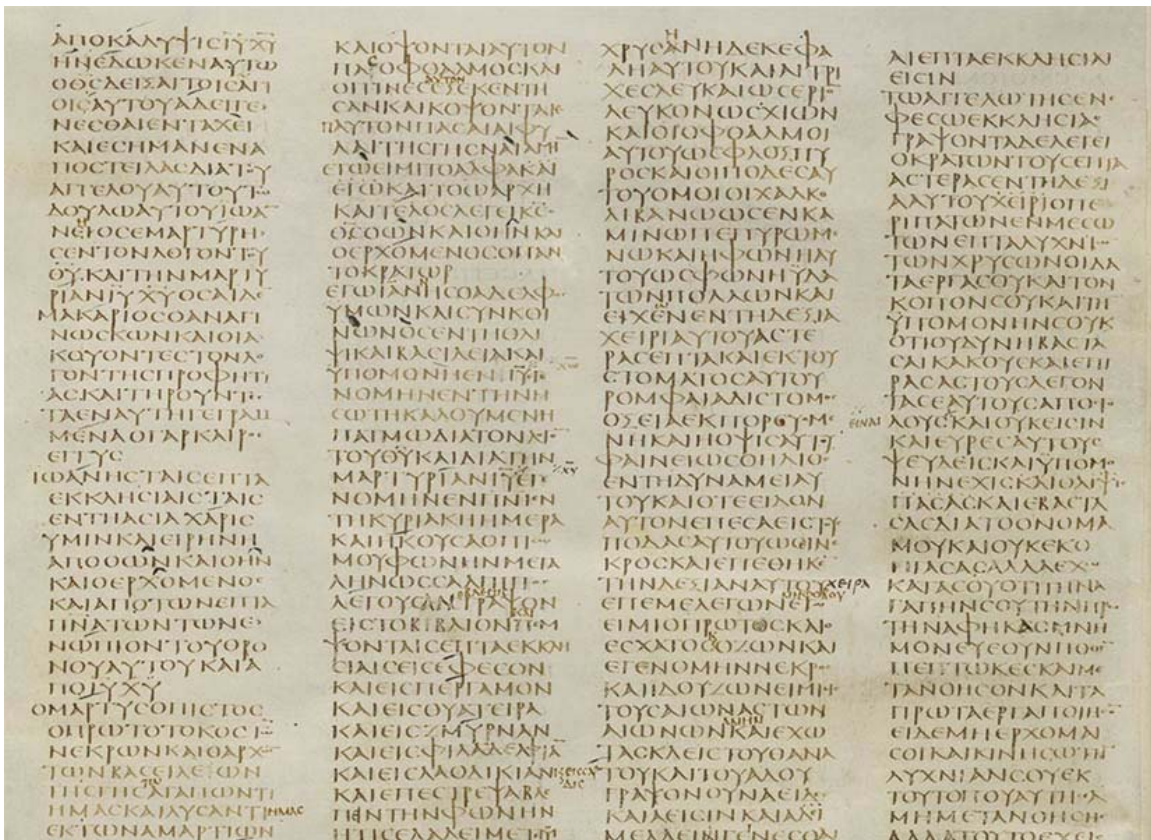 ΑΠΟΚΑΛΥΨΙϹΙΥΧΥ
ΗΝΕΔΩΚΕΝΑΥΤΩ
ΟΘϹΔΕΙΞΑΙΤΟΙϹΑΓΙ
ΟΙϹΑΥΤΟΥΑΔΕΙΓΕ
ΝΕϹΘΑΙΕΝΤΑΧΕΙ
ΚΑΙΕϹΗΜΑΝΕΝΑ
ΠΟϹΤΕΙΛΑϹΔΙΑΤΟΥ
ΑΓΓΕΛΟΥΑΥΤΟΥΤΩ
ΔΟΥΛΩΑΥΤΟΥΙΩΑ
ΝΕΙΟϹΕΜΑΡΤΥΡΗ
ϹΕΝΤΟΝΛΟΓΟΝΤΟΥ
ΘΥΚΑΙΤΗΝΜΑΡΤΥ
ΡΙΑΝΙΥΧΥΟϹΑΙΔΕ
ΜΑΚΑΡΙΟϹΟΑΝΑΓΙ
ΝΩϹΚΩΝΚΑΙΟΙΑ
ΚΟΥΟΝΤΕϹΤΟΝΛΟ
ΓΟΝΤΗϹΠΡΟΦΗΤΙ
ΑϹΚΑΙΤΗΡΟΥΝΤΕϹ
ΤΑΕΝΑΥΤΗΓΕΓΡΑΜ
ΜΕΝΑΟΓΑΡΚΑΙΡΟϹ
ΕΓΓΥϹ
ΙΩΑΝΗϹΤΑΙϹΕΠΤΑ
ΕΚΚΛΗϹΙΑΙϹΤΑΙϹ
ΕΝΤΗΑϹΙΑΧΑΡΙϹ
ΥΜΙΝΚΑΙΕΙΡΗΝΗ
ΑΠΟΟΩΝΚΑΙΟΗΝ
ΚΑΙΟΕΡΧΟΜΕΝΟϹ
ΚΑΙΑΠΟΤΩΝΕΠΤΑ
ΠΝΑΤΩΝΤΩΝΕ
ΝΩΠΙΟΝΤΟΥΘΡΟ
ΝΟΥΑΥΤΟΥΚΑΙΑ
ΠΟΙΥΧΥ
ΟΜΑΡΤΥϹΟΠΙϹΤΟϹ
ΟΠΡΩΤΟΤΟΚΟϹΤΩ
ΝΕΚΡΩΝΚΑΙΟΑΡΧΩ
ΤΩΝΒΑϹΕΙΛΕΩΝ
ΤΗϹΓΗϹΑΓΑΠΩΝΤΙ
ΗΜΑϹΚΑΙΛΥϹΑΝΤΙΗΜΑϹ
ΕΚΤΩΝΑΜΑΡΤΙΩΝ
ΚΑΙΟΨΟΝΤΑΙΑΥΤΟΝ
ΠΑϹΟΦΘΑΛΜΟϹΚΑΙ
ΟΙΤΙΝΕϹΕΞΕΚΕΝΤΗ
ϹΑΝΚΑΙΚΟΨΟΝΤΑΙΕ
ΠΑΥΤΟΝΠΑϹΑΙΑΙΦΥ
ΛΑΙΤΗϹΓΗϹΝΑΙΑΜΗ
ΕΓΩΕΙΜΙΤΟΑΛΦΑΚΑΙ
ΕΓΩΚΑΙΤΟΩΑΡΧΗ
ΚΑΙΤΕΛΟϹΛΕΓΕΙΚϹ
ΟΘϹΟΩΝΚΑΙΟΗΝΚΑΙ
ΟΕΡΧΟΜΕΝΟϹΟΠΑΝ
ΤΟΚΡΑΤΩΡ
ΕΓΩΙΑΝΗϹΟΑΔΕΛΦΟϹ
ΥΜΩΝΚΑΙϹΥΝΚΟΙ
ΝΩΝΟϹΕΝΤΗΘΛΙ
ΨΙΚΑΙΒΑϹΙΛΕΙΑΚΑΙ
ΥΠΟΜΟΝΗΕΝΙΥΕ
ΝΟΜΗΝΕΝΤΗΝΗ
ϹΩΤΗΚΑΛΟΥΜΕΝΗ
ΠΑΤΜΩΔΙΑΤΟΝΛΟ
ΤΟΥΘΥΚΑΙΔΙΑΤΗΝ
ΜΑΡΤΥΡΙΑΝΙΥΕΓΕ
ΝΟΜΗΝΕΝΠΝΙΕΝ
ΤΗΚΥΡΙΑΚΗΗΜΕΡΑ
ΚΑΙΗΚΟΥϹΑΟΠΙϹΩ
ΜΟΥΦΩΝΗΝΜΕΓΑ
ΛΗΝΩϹϹΑΛΠΙΓΓΟϹ
ΛΕΓΟΥϹΑΝΓΡΑΨΟΝ
ΕΙϹΤΟΒΙΒΛΙΟΝΠΕΜ
ΨΟΝΤΑΙϹΕΠΤΑΕΚΚΛΗ
ϹΙΑΙϹΕΙϹΕΦΕϹΟΝ
ΚΑΙΕΙϹΠΕΡΓΑΜΟΝ
ΚΑΙΕΙϹΘΥΑΤΕΙΡΑ
ΚΑΙΕΙϹΖΜΥΡΝΑΝ
ΚΑΙΕΙϹΦΙΛΑΔΕΛΦΙΑ
ΚΑΙΕΙϹΛΑΟΔΙΚΙΑΝ
ΚΑΙΕΠΕϹΤΡΕΨΑΒΛΕ
ΠΕΝΤΗΝΦΩΝΗΝ
ΗΤΙϹΕΛΑΛΕΙΜΕΤΕΜΟΥ
ΧΡΥϹΑΝΗΔΕΚΕΦΑ
ΛΗΑΥΤΟΥΚΑΙΑΙΤΡΙ
ΧΕϹΛΕΥΚΑΙΩϹΕΡΙΟΝ
ΛΕΥΚΟΝΩϹΧΙΩΝ
ΚΑΙΟΙΟΦΘΑΛΜΟΙ
ΑΥΤΟΥΩϹΦΛΟΞΠΥ
ΡΟϹΚΑΙΟΙΠΟΔΕϹΑΥ
ΤΟΥΟΜΟΙΟΙΧΑΛΚΟ
ΛΙΒΑΝΩΩϹΕΝΚΑ
ΜΙΝΩΠΕΠΥΡΩΜΕ
ΝΩΚΑΙΗΦΩΝΗΑΥ
ΤΟΥΩϹΦΩΝΗΥΔΑ
ΤΩΝΠΟΛΛΩΝΚΑΙ
ΕΙΧΕΝΕΝΤΗΔΕΞΙΑ
ΧΕΙΡΙΑΥΤΟΥΑϹΤΕ
ΡΑϹΕΠΤΑΚΑΙΕΚΤΟΥ
ϹΤΟΜΑΤΟϹΑΥΤΟΥ
ΡΟΜΦΑΙΑΔΙϹΤΟΜΟϹ
ΟΞΕΙΑΕΚΠΟΡΕΥΟΜΕ
ΝΗΚΑΙΗΟΨΙϹΑΥΤΟΥ
ΦΑΙΝΕΙΩϹΟΗΛΙΟϹ
ΕΝΤΗΔΥΝΑΜΕΙΑΥ
ΤΟΥΚΑΙΟΤΕΕΙΔΟΝ
ΑΥΤΟΝΕΠΕϹΑΕΙϹΤΟΥϹ
ΠΟΔΑϹΑΥΤΟΥΩϹΙΝΕ
ΚΡΟϹΚΑΙΕΠΕΘΗΚΕΝ
ΤΗΝΔΕΞΙΑΝΑΥΤΟΥΧΕΙΡΑ
ΕΠΕΜΕΛΕΓΩΝΕΓΩ
ΕΙΜΙΟΠΡΩΤΟϹΚΑΙΟ
ΕϹΧΑΤΟϹΟΖΩΝΚΑΙ
ΕΓΕΝΟΜΗΝΝΕΚΡΟϹ
ΚΑΙΙΔΟΥΖΩΝΕΙΜΙ
ΤΟΥϹΑΙΩΝΑϹΤΩΝ
ΑΙΩΝΩΝΚΑΙΕΧΩ
ΤΑϹΚΛΕΙϹΤΟΥΘΑΝΑ
ΤΟΥΚΑΙΤΟΥΑΔΟΥ
ΓΡΑΨΟΝΟΥΝΑΕΙΔΕϹ
ΚΑΙΑΕΙϹΙΝΚΑΙΑΔΙ
ΜΕΛΛΕΙΝΓΕΝΕϹΘΑΙ
ΑΙΕΠΤΑΕΚΚΛΗϹΙΑΙ
ΕΙϹΙΝ
ΤΩΑΓΓΕΛΩΤΗϹΕΝΕ
ΦΕϹΩΕΚΚΛΗϹΙΑϹ
ΓΡΑΨΟΝΤΑΔΕΛΕΓΕΙ
ΟΚΡΑΤΩΝΤΟΥϹΕΠΤΑ
ΑϹΤΕΡΑϹΕΝΤΗΔΕΞΙ
ΑΑΥΤΟΥΧΕΙΡΙΟΠΕ
ΡΙΠΑΤΩΝΕΝΜΕϹΩ
ΤΩΝΕΠΤΑΛΥΧΝΙΩ
ΤΩΝΧΡΥϹΩΝΟΙΔΑ
ΤΑΕΡΓΑϹΟΥΚΑΙΤΟΝ
ΚΟΠΟΝϹΟΥΚΑΙΤΗ
ΥΠΟΜΟΝΗΝϹΟΥΚ
ΟΤΙΟΥΔΥΝΗΒΑϹΤΑ
ϹΑΙΚΑΚΟΥϹΚΑΙΕΠΙ
ΡΑϹΑϹΤΟΥϹΛΕΓΟΝ
ΤΑϹΕΑΥΤΟΥϹΑΠΟϹΤΟ
ΛΟΥϹΚΑΙΟΥΚΕΙϹΙΝ
ΚΑΙΕΥΡΕϹΑΥΤΟΥϹ
ΨΕΥΔΕΙϹΚΑΙΥΠΟΜΟ
ΝΗΝΕΧΙϹΚΑΙΘΛΙΨΙϹ
ΠΑϹΑϹΚΑΙΕΒΑϹΤΑ
ϹΑϹΔΙΑΤΟΟΝΟΜΑ
ΜΟΥΚΑΙΟΥΚΕΚΟ
ΠΙΑϹΑϹΑΛΛΑΕΧΩ
ΚΑΤΑϹΟΥΟΤΙΤΗΝΑ
ΓΑΠΗΝϹΟΥΤΗΝΠΡΩ
ΤΗΝΑΦΗΚΑϹΜΝΗ
ΜΟΝΕΥΕΟΥΝΠΟΘΕ
ΠΕΠΤΩΚΕϹΚΑΙΜΕ
ΤΑΝΟΗϹΟΝΚΑΙΤΑ
ΠΡΩΤΑΕΡΓΑΠΟΙΗϹΟΝ
ΕΙΔΕΜΗΕΡΧΟΜΑΙ
ϹΟΙΚΑΙΚΙΝΗϹΩΤΗ
ΛΥΧΝΙΑΝϹΟΥΕΚ
ΤΟΥΤΟΠΟΥΑΥΤΗϹΕΑ
ΜΗΜΕΤΑΝΟΗϹΗϹ